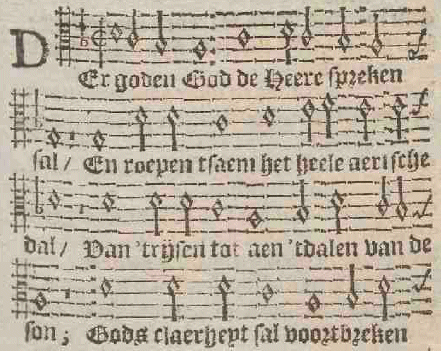 DEr goden God de Heere spreken
sal / En roepen tsaem het heele aerische
dal / Van 'trijsen tot aen 'tdalen van de
son ; Gods claerheyt sal voortbreken